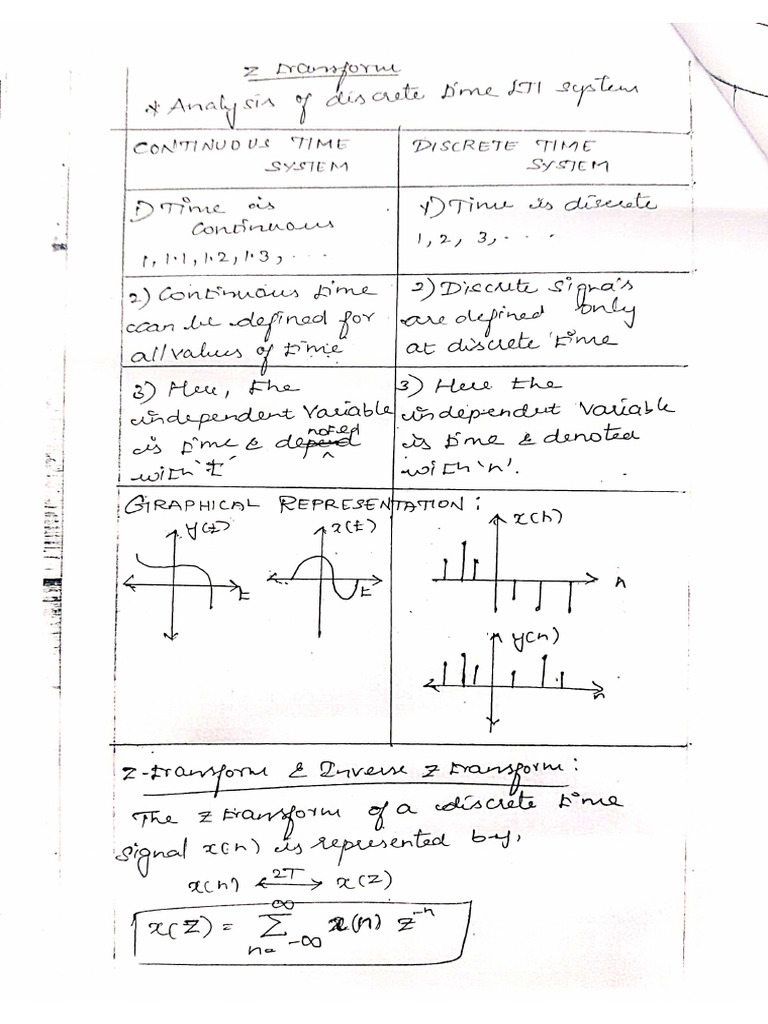 z transform
* Analysis of discrete time LTI system
CONTINUOUS TIME SYSTEM
DISCRETE TIME SYSTEM
1) Time is continuous
1, 1.1, 1.2, 1.3, ...
1) Time is discrete
1, 2, 3, ...
2) Continuous time
can be defined for
all values of time
2) Discrete Signals
are defined only
at discrete time
3) Here, the
independent variable
is time & denoted
with 't'
3) Here the
independent variable
is time & denoted
with 'n'.
GRAPHICAL REPRESENTATION:
y(t)
x(t)
x(n)
t
t
n
y(n)
n
Z-transform & Inverse Z transform:
The z transform of a discrete time
signal x(n) is represented by,
x(n) ⟷ x(z)
ZT
x(z) = ∑ x(n) z⁻ⁿ
∞
n=-∞